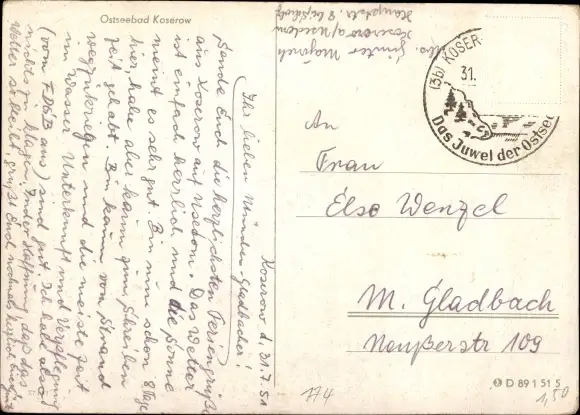 Ostseebad Koserow
Koserow d. 31.7.51
Ihr lieben München-Gladbacher!
Sende Euch die herzlichsten Feriengrüße
aus Koserow auf Usedom. Das Wetter
ist einfach herrlich und die Sonne
meint es sehr gut. Bin nun schon 8 Tage
hier, habe aber kaum zum Schreiben
Zeit gehabt. Bin kaum vom Strand
wegzukriegen und die meiste Zeit
im Wasser. Unterkunft und Verpflegung
(vom FDGB aus) sind gut. Ich habe also
nichts zu klagen. In der Hoffnung, daß das
Wetter so bleibt, grüßt Euch nochmals
Abs. Günter
Koserow a/Usedom
Hauptstr. 8 bei
(3b) KOSER
31.
Das Juwel der Ostsee
An
Frau
Else Wenzel
M. Gladbach
Neußerstr 109
D 89 1 51 5
174
1,50